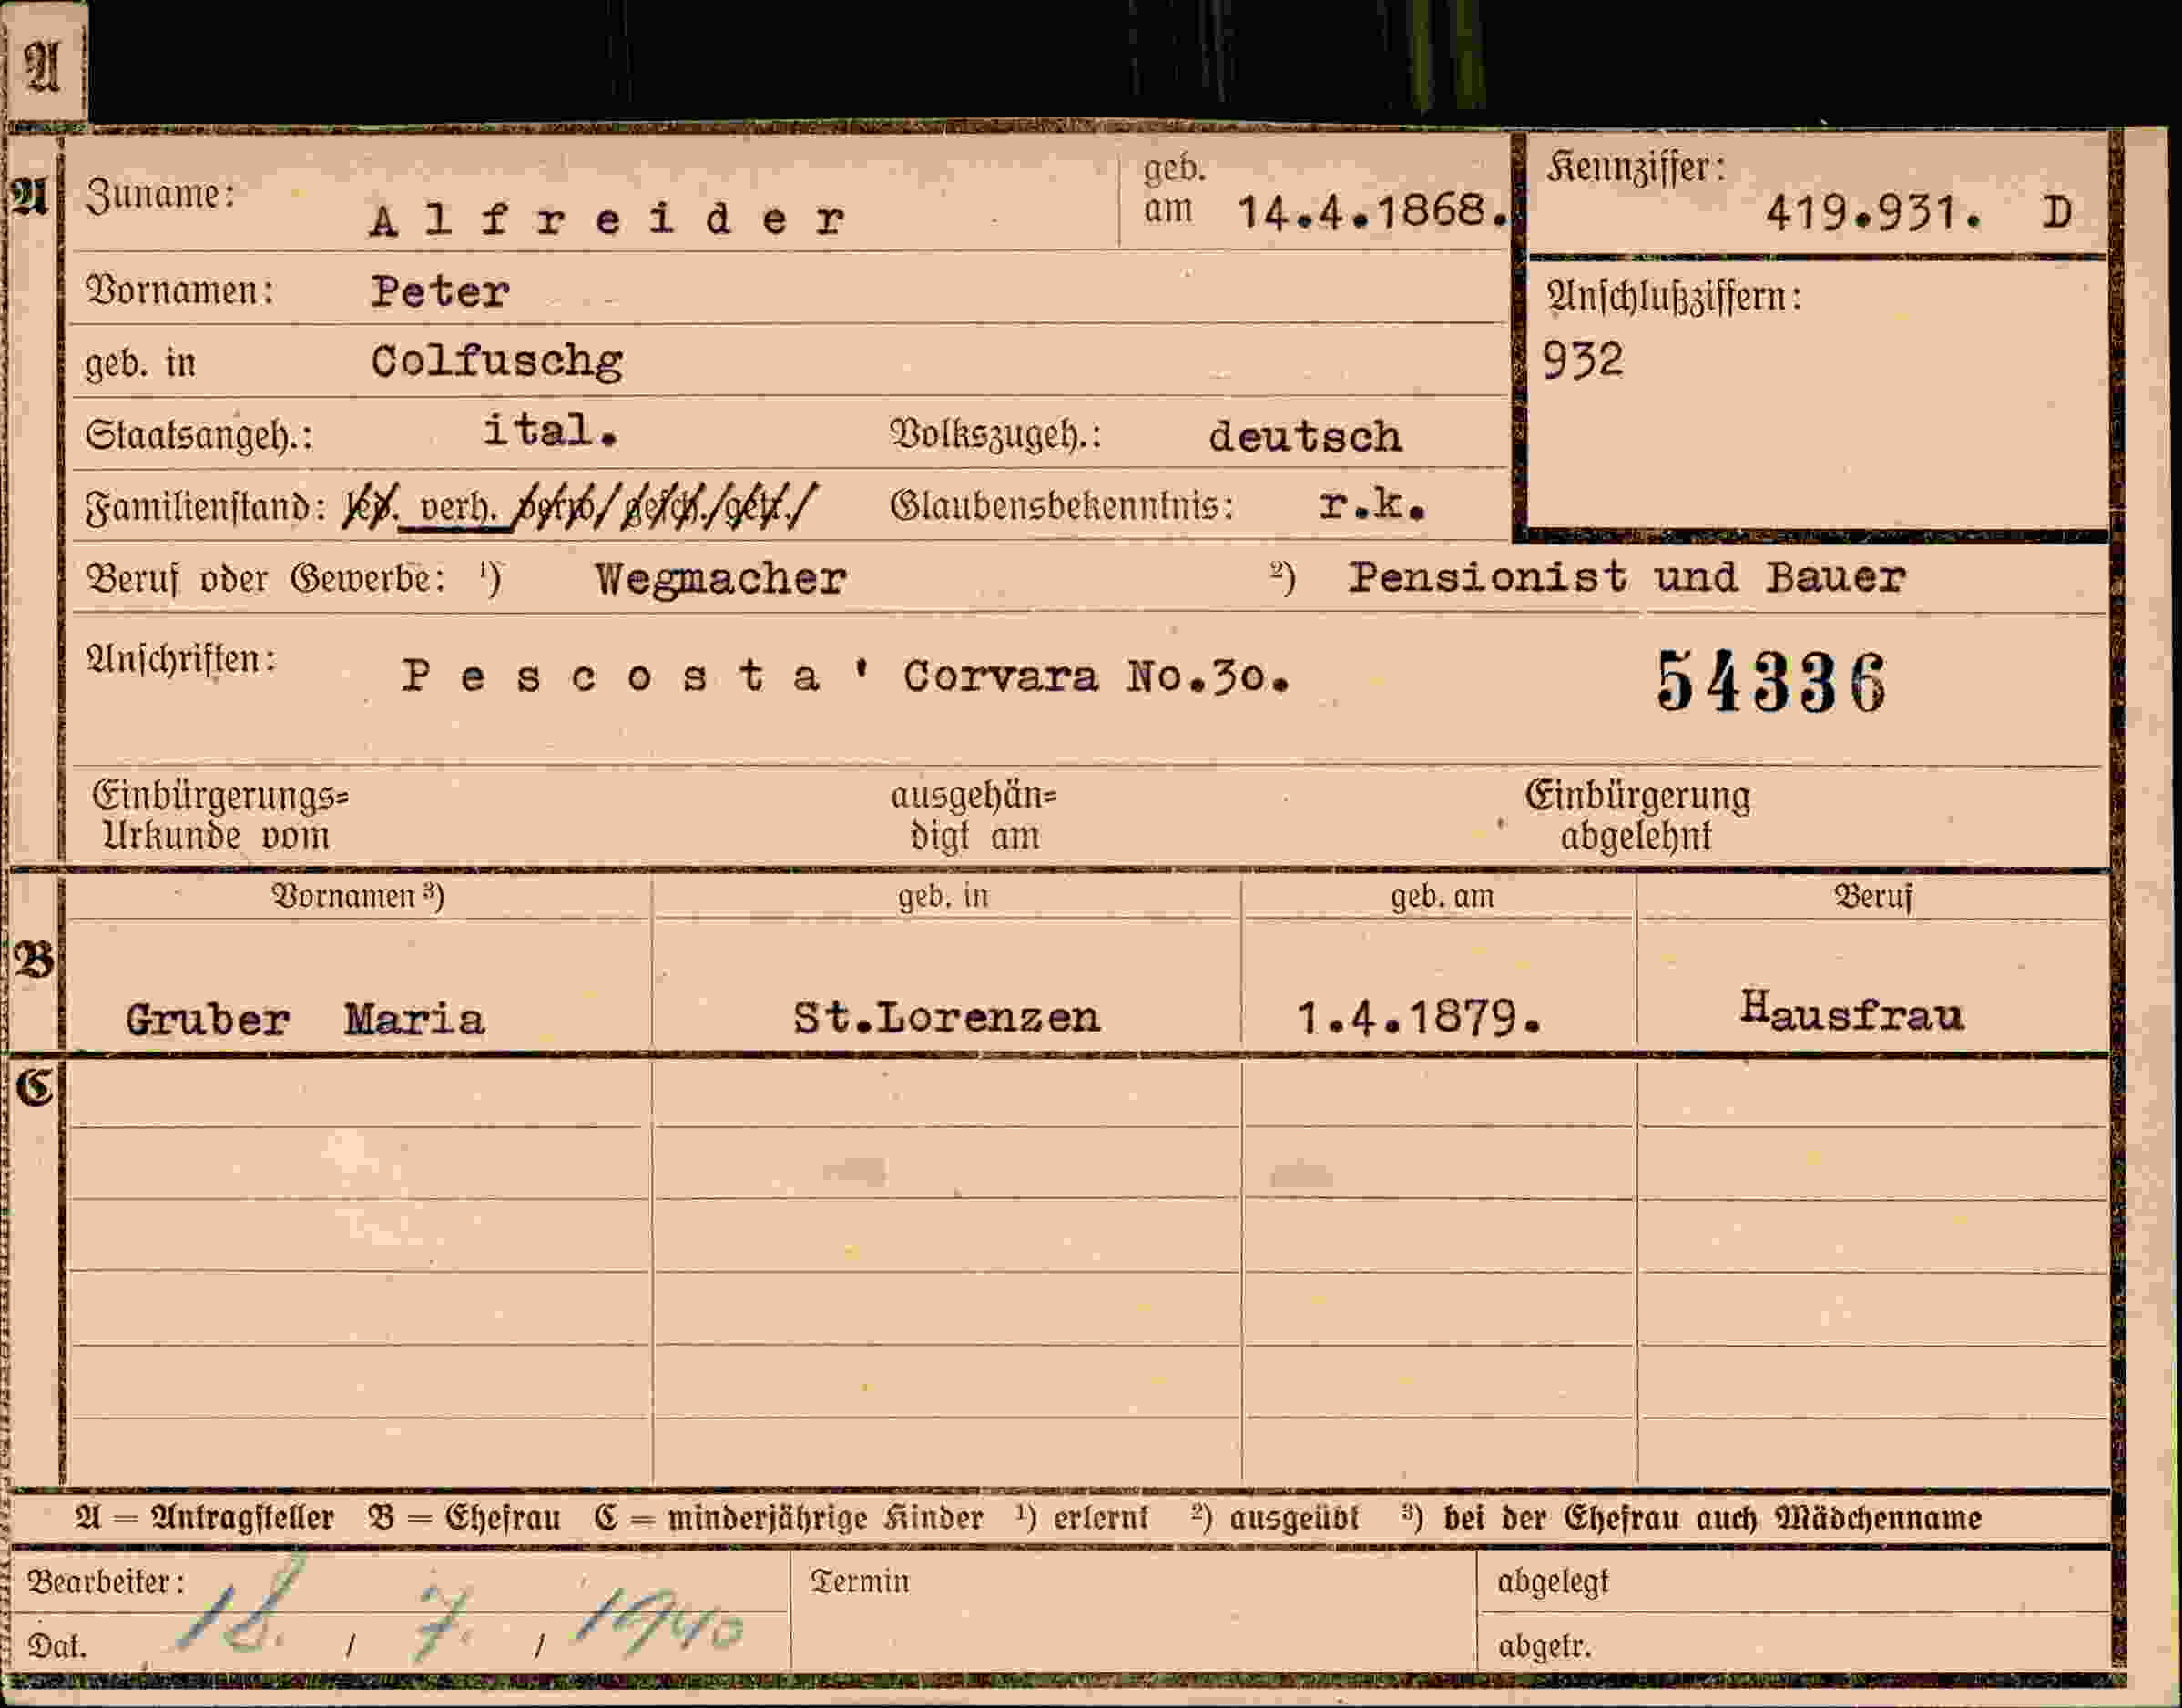 A
A Zuname: Alfreider geb. am 14.4.1868. Kennziffer: 419.931. D
Vornamen: Peter
Anschlußziffern:
geb. in Colfuschg 932
Staatsangeh.: ital. Volkszugeh.: deutsch
Familienstand: led. verh. verw/ gesch./getr./ Glaubensbekenntnis: r.k.
Beruf oder Gewerbe: ¹) Wegmacher ²) Pensionist und Bauer
Anschriften: Pescosta' Corvara No.30. 54336
Einbürgerungs= ausgehän= Einbürgerung
Urkunde vom digt am abgelehnt
Vornamen ³) geb. in geb. am Beruf
B
Gruber Maria St.Lorenzen 1.4.1879. Hausfrau
C
A = Antragsteller B = Ehefrau C = minderjährige Kinder ¹) erlernt ²) ausgeübt ³) bei der Ehefrau auch Mädchenname
Bearbeiter: Termin abgelegt
Dat. 18. / 7. / 1940 abgetr.